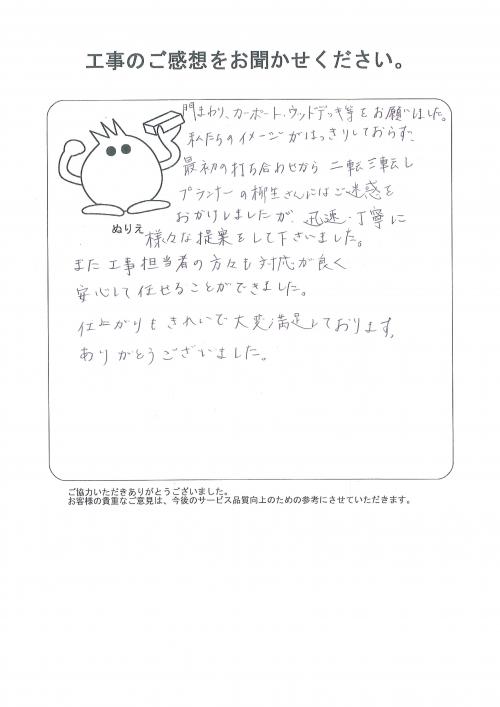 工事のご感想をお聞かせください。
門まわり、カーポート、ウッドデッキ等をお願いしました。
私たちのイメージがはっきりしておらず、
最初の打ち合わせから 二転三転し
プランナーの柳生さんにはご迷惑を
おかけしましたが、迅速・丁寧に
ぬりえ
様々な提案をして下さいました。
また 工事担当者の方々も対応が良く
安心して任せることができました。
仕上がりもきれいで大変満足しております。
ありがとうございました。
ご協力いただきありがとうございました。
お客様の貴重なご意見は、今後のサービス品質向上のための参考にさせていただきます。